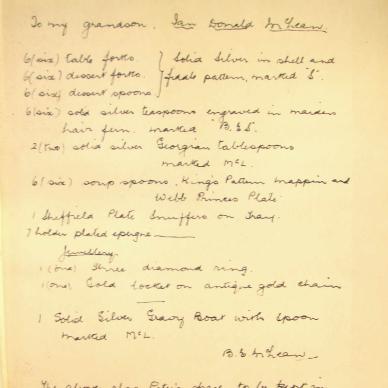 To my grandson, Ian Donald McLean.
6(six) table forks. } Solid Silver in shell and
6(six) dessert forks. } pattern, marked "S".
6(six) dessert spoons }
6(six) solid silver teaspoons engraved in maiden
hair fern. marked "B.S.S."
2(two) solid silver Georgian tablespoons
marked McL.
6(six) soup spoons, King's Pattern Mappin and
Webb Princes Plate.
1 Sheffield Plate Snuffers on Tray.
7 holder plated epergne
Jewellery.
1(one) three diamond ring.
1(one) Gold locket on antique gold chain
1 Solid Silver Gravy Boat with spoon
marked McL.
B.S. McLean
The above also to be kept in